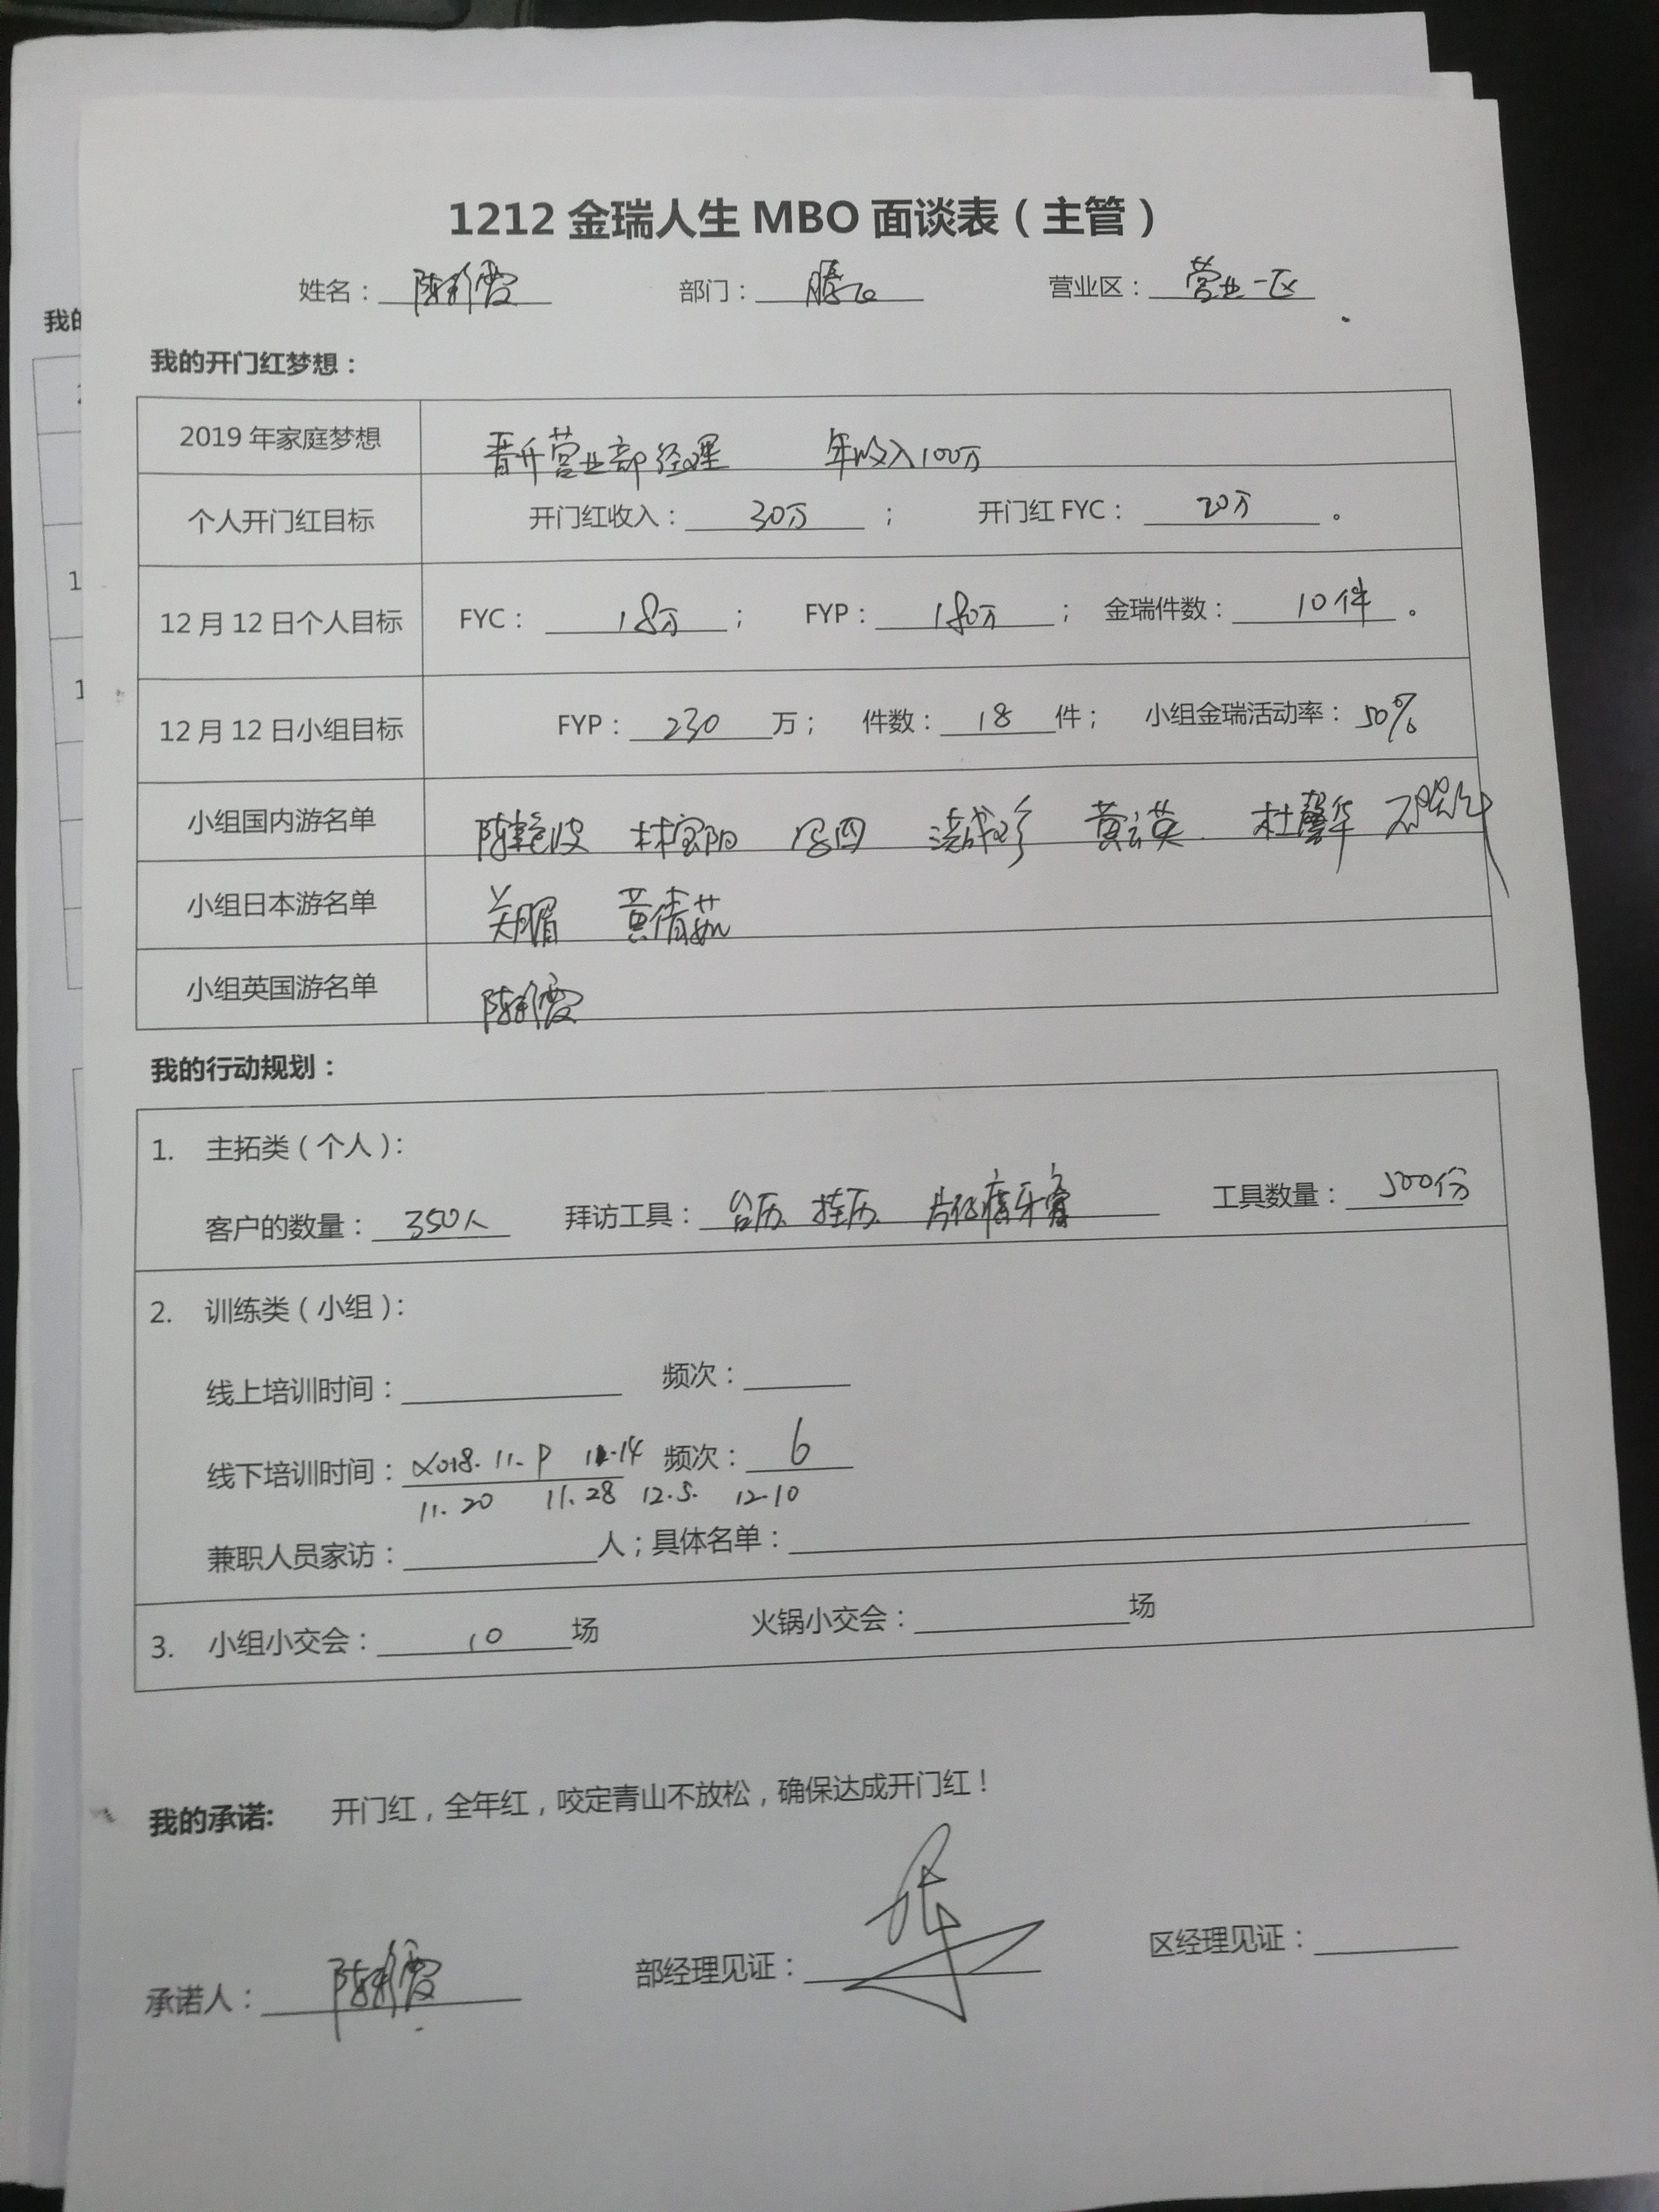 1212 金瑞人生 MBO 面谈表（主管）
姓名：陈彩霞 部门：腾飞 营业区：营业一区
我的开门红梦想：
2019 年家庭梦想 晋升营业部经理 年收入100万
个人开门红目标 开门红收入：30万； 开门红 FYC：20万。
12 月 12 日个人目标 FYC：18万； FYP：180万； 金瑞件数：10件。
12 月 12 日小组目标 FYP：230万； 件数：18件； 小组金瑞活动率：50%
小组国内游名单 陈艳波 林宝阳 黄云英 杜馨华
小组日本游名单 关眉 黄倩茹
小组英国游名单 陈彩霞
我的行动规划：
1. 主拓类（个人）：
客户的数量：350人 拜访工具：台历 挂历 片仔癀牙膏 工具数量：500份
2. 训练类（小组）：
线上培训时间： 频次：
线下培训时间：2018. 11. 9 11.14 频次：6
11. 20 11. 28 12.5. 12.10
兼职人员家访： 人；具体名单：
3. 小组小交会：10场 火锅小交会： 场
我的承诺: 开门红，全年红，咬定青山不放松，确保达成开门红！
承诺人：陈彩霞 部经理见证： 区经理见证：
我的
1
1